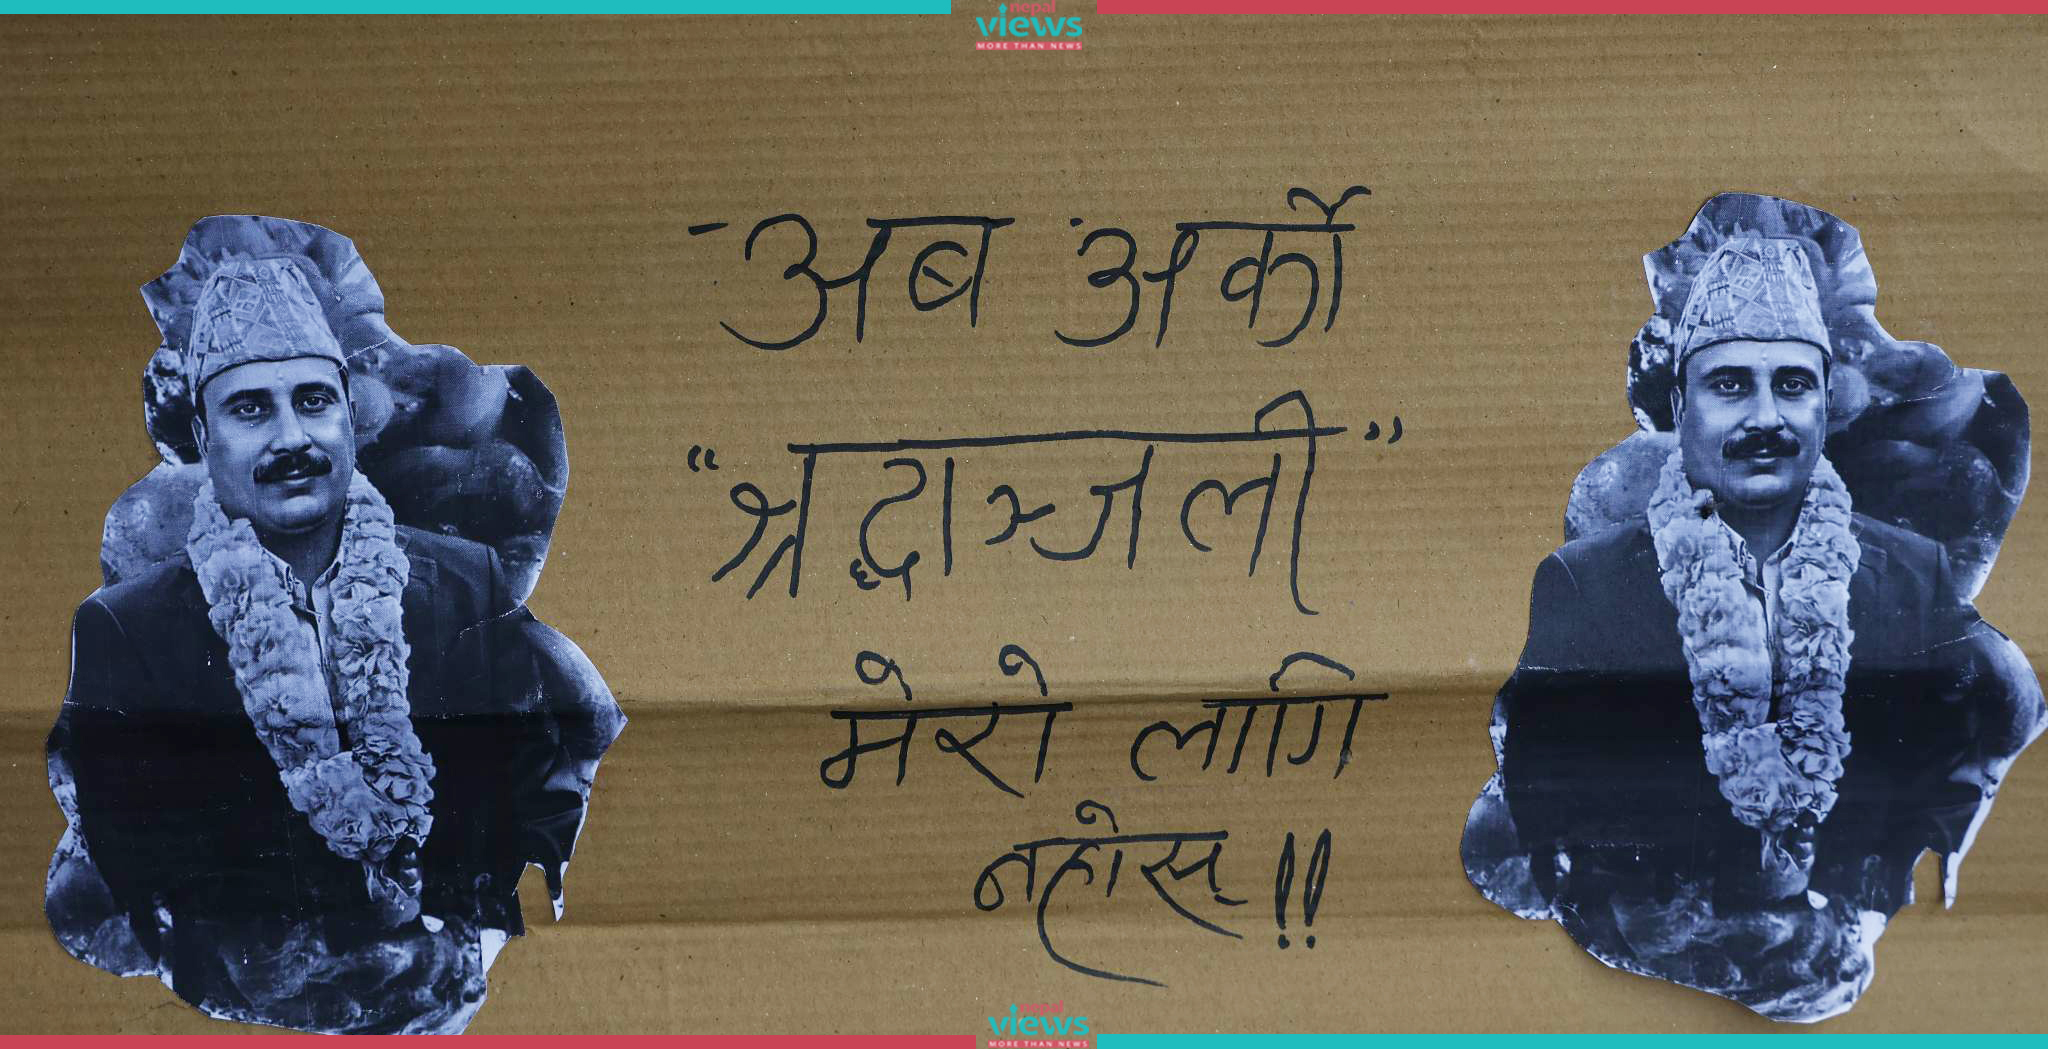 nepal
views
MORE THAN NEWS
- अब अर्को
“श्रद्धाञ्जली”
मेरो लागि
नहोस् !!
nepal
views
MORE THAN NEWS